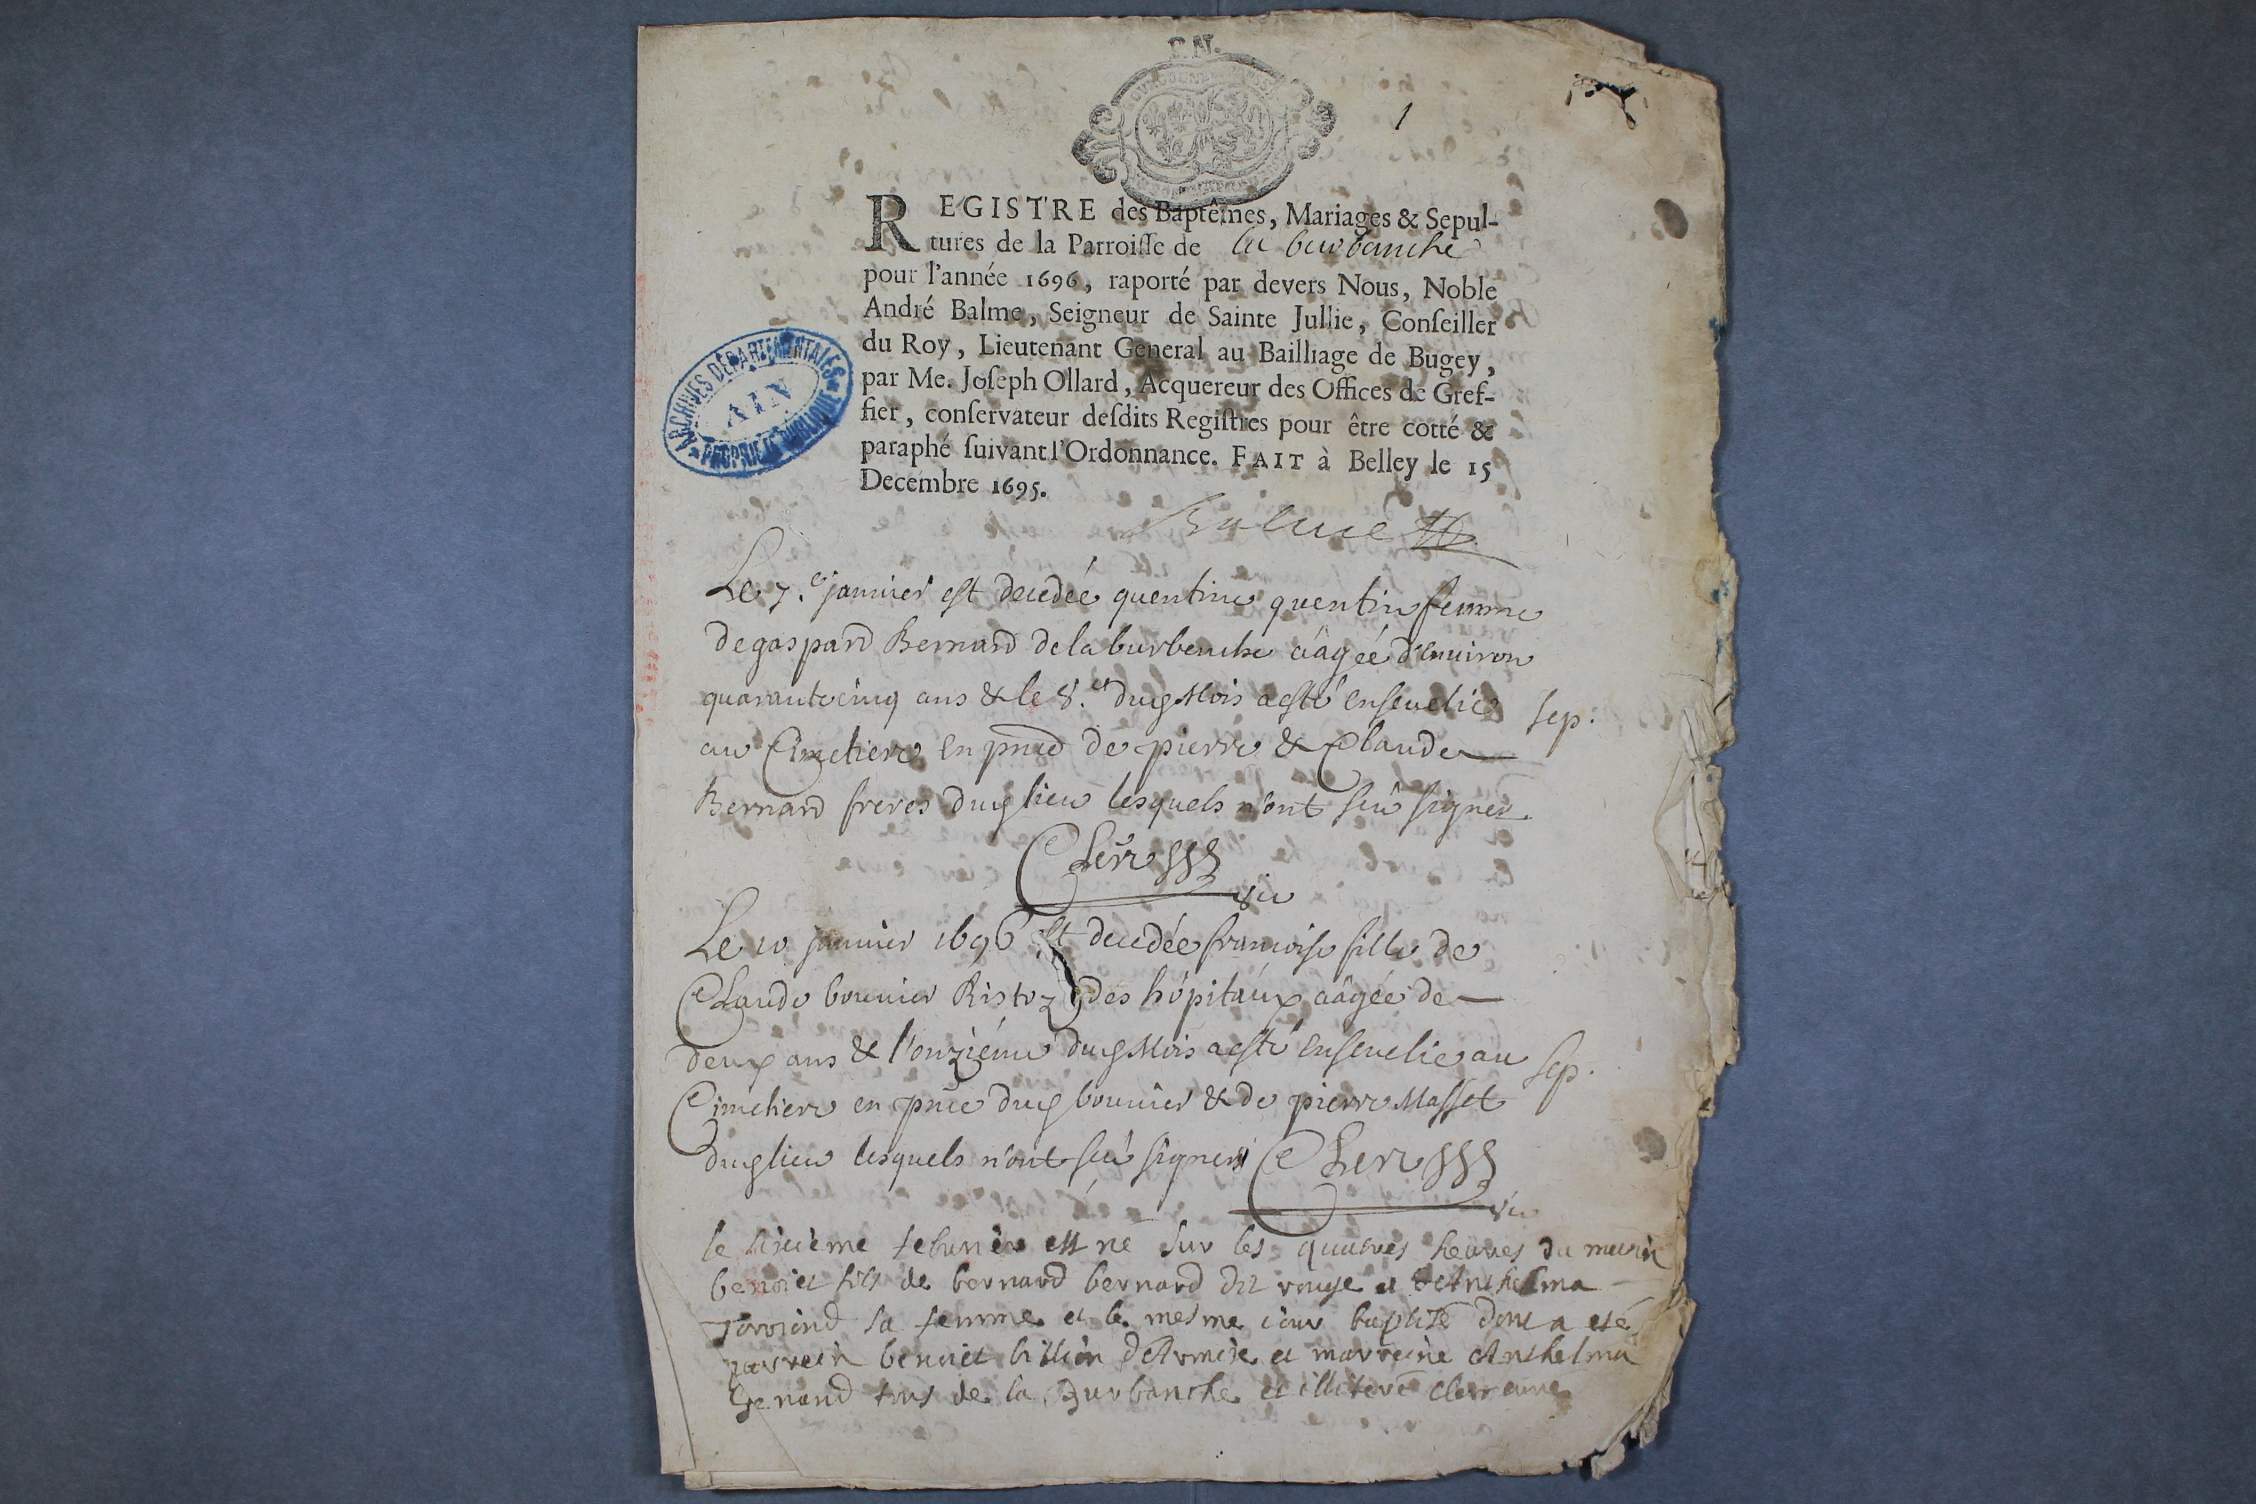 1
REGISTRE des Baptêmes, Mariages & Sepul-
tures de la Parroisse de la burbanche
pour l'année 1696, raporté par devers Nous, Noble
André Balme, Seigneur de Sainte Jullie, Conseiller
du Roy, Lieutenant General au Bailliage de Bugey,
par Me. Joseph Ollard, Acquereur des Offices de Gref-
fier, conservateur desdits Registres pour être cotté &
paraphé suivant l'Ordonnance. FAIT à Belley le 15
Decembre 1695.
ARCHIVES DÉPARTEMENTALES
AIN
PROPRIÉTÉ PUBLIQUE
Balme
Le 7.e janvier est decedée quentine quentin femme
de gaspard Bernard de la burbenche aâgée d'environ
quarante cinq ans & le 8.e dud Mois a esté ensevelie
sep.
au Cimetiere en pnce de pierre & Claude
Bernard freres dud lieu lesquels n'ont sceu signer
Clerc
Le 10 janvier 1696 est decedée françoise fille de
Claude bouvier Ristoz des hôpitaux aâgée de
deux ans & l'onziéme dud Mois a esté ensevelie au
sep.
Cimetiere en pnce dud bouvier & de pierre Masset
dud lieu lesquels n'ont sceu signer Clerc
le febvrier est né sur les quatres heures du matin
benoict fils de bernard bernard dit rouge et Anthelma
sa femme et le mesme iour baptisé dont a esté
parrein benoict billion et marreine Anthelma
tous de la burbanche et